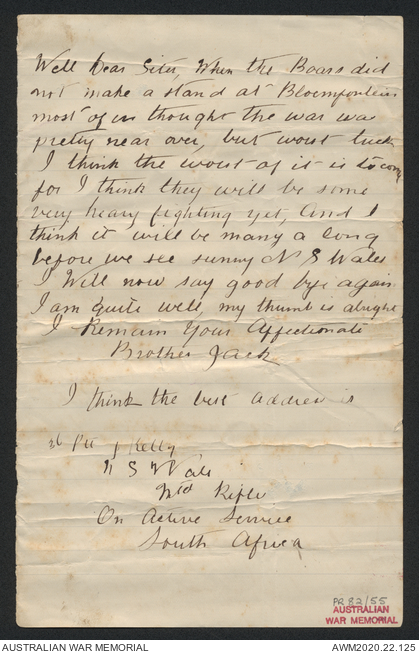 Well Dear Sister, When the Boars did
not make a stand at Bloemfontein
most of us thought the war was
pretty near over, but worst luck
I think the worst of it is to come
for I think they will be some
very heavy fighting yet, and I
think it will be many a long
before we see sunny N S Wales
I Will now say good bye again
I am quite well, my thumb is alright
I Remain Your Affectionate
Brother Jack
I think the best address is
J Kelly
N S Wales
Mtd Rifle
On Active Service
South Africa
PR 82/55
AUSTRALIAN
WAR MEMORIAL
AUSTRALIAN WAR MEMORIAL AWM2020.22.125